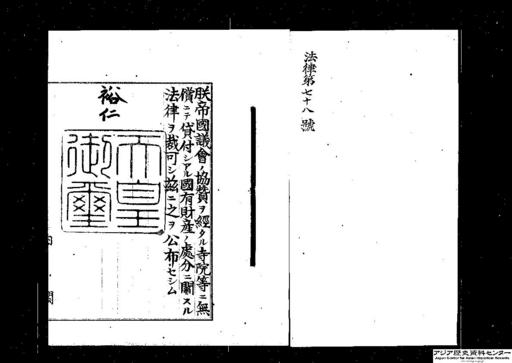 法律第七十八號
朕帝國議會ノ協贊ヲ經タル寺院等ニ無
償ニテ貸付シアル國有財産ノ處分ニ關スル
法律ヲ裁可シ茲ニ之ヲ公布セシム
裕仁
天皇
御璽
アジア歴史資料センター
Japan Center for Asian Historical Records